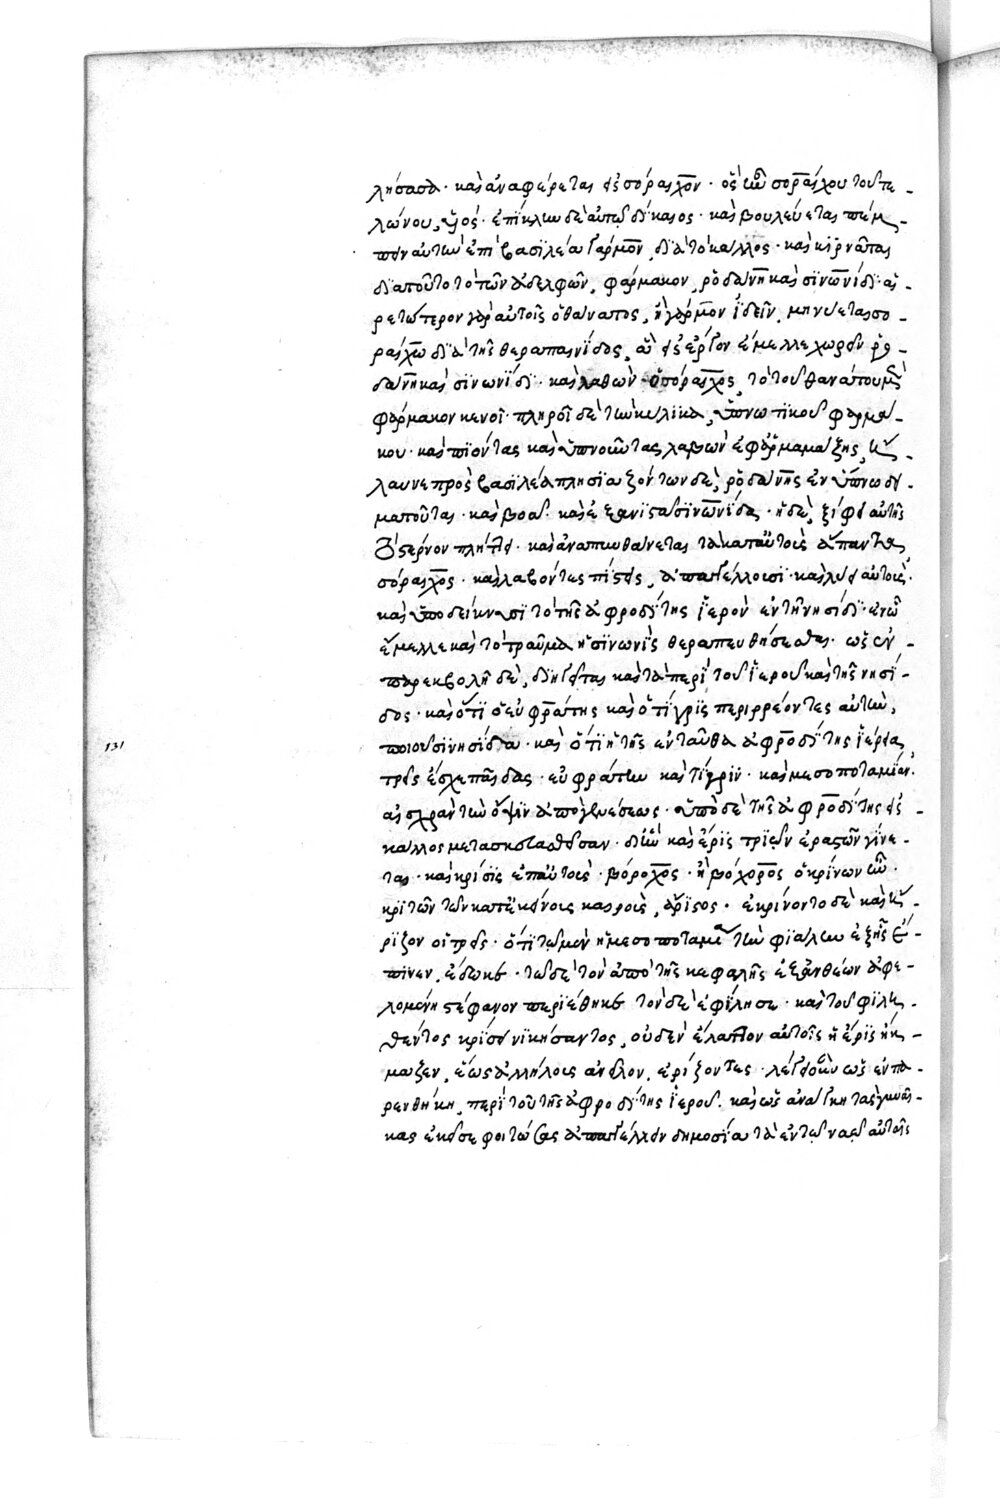 λήσασα· καὶ ἀναφέρεται εἰς σόραιχον· ὃς ἦν σοραίχου τοῦ τε-
λώνου υἱός· ἐπίκλην δὲ αὐτῷ δίκαιος· καὶ βουλεύεται πέμ-
πειν αὐτὴν ἐπὶ βασιλέα γάρμον, διὰ τὸ κάλλος· καὶ κιρνᾶται
διὰ τοῦτο τὸ τῶν ἀδελφῶν, φάρμακον, ῥοδάνη καὶ σινωνίδι· αἱ-
ρετώτερον γὰρ αὐτοῖς ὁ θάνατος, ἢ γάρμον ἰδεῖν, μηνύεται σο-
ραίχῳ διὰ τῆς θεραπαινίδος, ἣ εἰς ἔργον ἔμελλε χωρεῖν ῥο-
δάνη καὶ σινωνίδι· καὶ λαθὼν ὁ σόραιχος, τὸ τοῦ θανάτου μὲν
φάρμακον κενοῖ· πληροῖ δὲ τὴν κύλικα, ὑπνωτικοῦ φαρμά-
κου· καὶ πιόντας καὶ ὑπνοῦντας λαβὼν ἐφ' ἁρμαμάξης, ἤ-
λαυνε πρὸς βασιλέα πλησιαζόντων δὲ, ῥοδάνης ἐνυπνίῳ δει-
ματοῦται· καὶ βοᾷ· καὶ ἐξανιστᾷ σινωνίδα· ἡ δὲ, ξίφει αὐτῆς
τὸ στέρνον πλήττει· καὶ ἀναπυνθάνεται τὰ κατ' αὐτοὺς ἅπαντα,
σόραιχος· καὶ λαβόντες πίστεις, ἀπαγγέλλουσι· καὶ λύει αὐτούς·
καὶ ὑποδείκνυσι τὸ τῆς ἀφροδίτης ἱερὸν ἐν τῇ νησίδι· ἐν ᾧ
ἔμελλε καὶ τὸ τραῦμα ἡ σινωνὶς θεραπευθήσεσθαι· ὡς ἐν
παρεκβολῇ δὲ, διηγεῖται καὶ τὰ περὶ τοῦ ἱεροῦ καὶ τῆς νησί-
δος· καὶ ὅτι ὁ εὐφράτης καὶ ὁ τίγρις περιρρέοντες αὐτὴν,
ποιοῦσι νησίδα· καὶ ὅτι ἡ τῆς ἐνταῦθα ἀφροδίτης ἱέρεια,
τρεῖς ἔσχε παῖδας· εὐφράτην καὶ τίγριν· καὶ μεσοποταμίαν·
αἰσχρὰν τὴν ὄψιν ἀπὸ γενέσεως· ὑπὸ δὲ τῆς ἀφροδίτης εἰς
κάλλος μετασκευασθεῖσαν· δι' ἣν καὶ ἔρις τριῶν ἐραστῶν γίνε-
ται· καὶ κρίσις ἐπ' αὐτοῖς· βόροχος· ἢ βόχορος ὁ κρίνων ἦν·
κριτῶν τῶν κατ' ἐκείνους καιροὺς, ἄριστος· ἐκρίνοντο δὲ καὶ ἤ-
ριζον οἱ τρεῖς· ὅτι τῷ μὲν ἡ μεσοποταμία τὴν φιάλην ἐξ ἧς ἔ-
πινεν, ἔδωκε· τῷ δὲ τὸν ἀπὸ τῆς κεφαλῆς ἐξ ἀνθέων ἀφε-
λομένη στέφανον περιέθηκε τὸν δὲ ἐφίλησε· καὶ τοῦ φιλη-
θέντος κρίσει νικήσαντος, οὐδὲν ἔλαττον αὐτοῖς ἡ ἔρις ἤκ-
μαζεν, ἕως ἀλλήλους ἀνεῖλον, ἐρίζοντες· λέγει οὖν ὡς ἐν πα-
ρενθήκῃ, περὶ τοῦ τῆς ἀφροδίτης ἱεροῦ· καὶ ὡς ἀνάγκη τὰς γυναῖ-
κας ἐκεῖσε φοιτώσας ἀπαγγέλλειν δημοσίᾳ τὰ ἐν τῷ ναῷ αὐταῖς
131